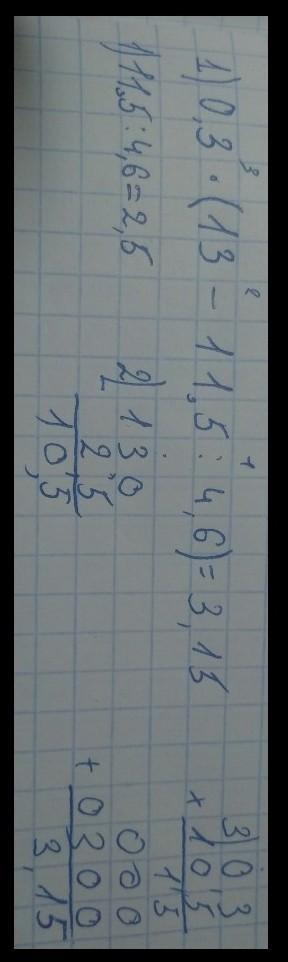 3 2 1
1) 0,3 · (13 - 11,5 : 4,6) = 3,15
1) 11,5 : 4,6 = 2,5
2) 13 0
- 2,5
10,5
3) 0,3
× 10,5
1,5
000
+ 0300
3,15